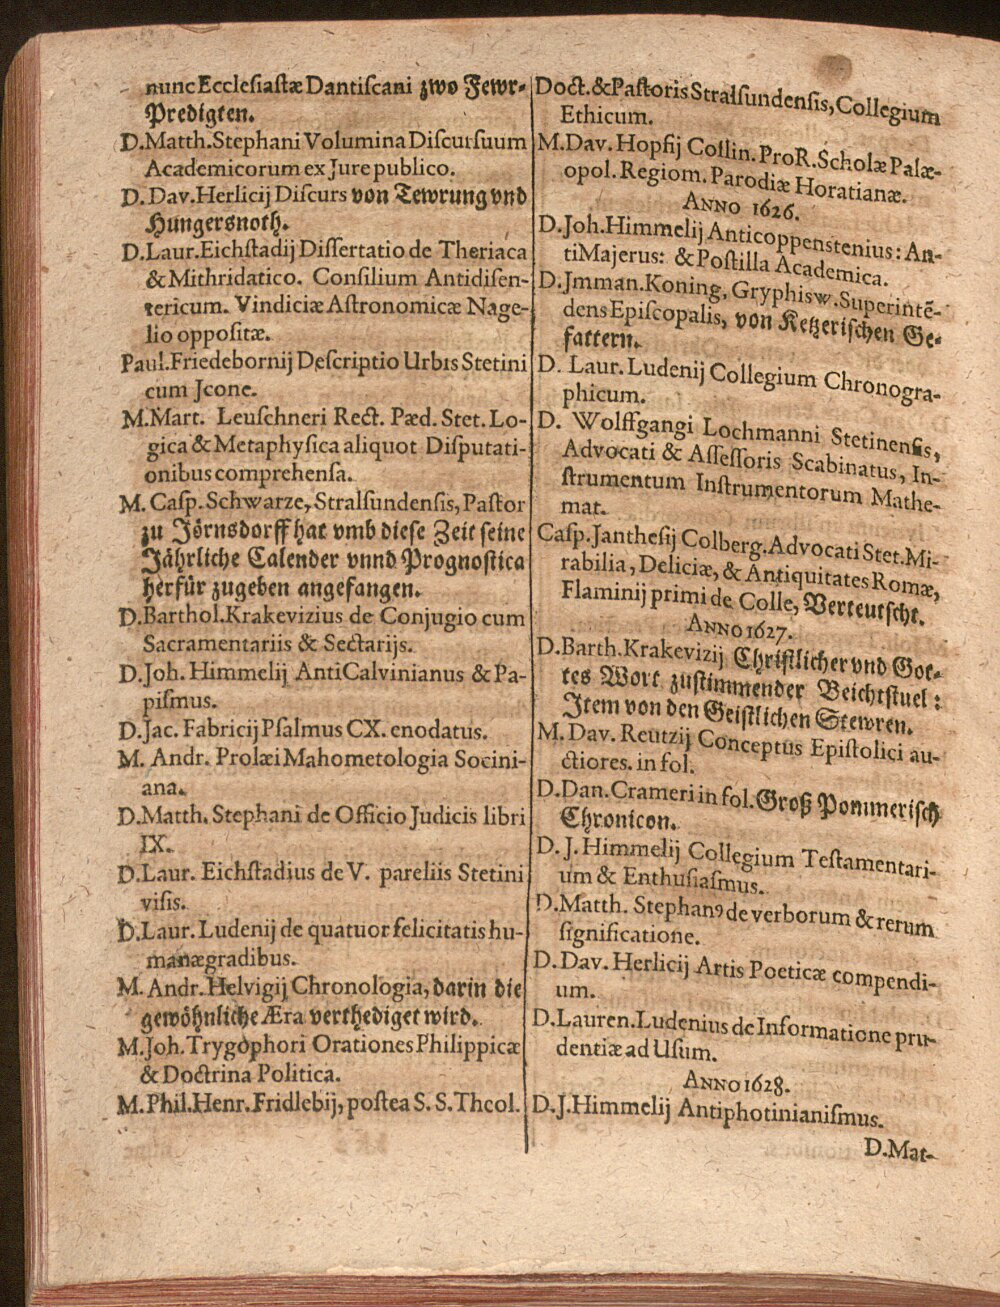 nunc Ecclesiastæ Dantiscani zwo Fewr-
Predigten.
D. Matth. Stephani Volumina Discursuum
Academicorum ex Jure publico.
D. Dav. Herlicij Discurs von Tewrung vnd
Hungersnoth.
D. Laur. Eichstadij Dissertatio de Theriaca
& Mithridatico. Consilium Antidisen-
tericum. Vindiciæ Astronomicæ Nage-
lio oppositæ.
Paul. Friedebornij Descriptio Urbis Stetini
cum Jcone.
M. Mart. Leuschneri Rect. Pæd. Stet. Lo-
gica & Metaphysica aliquot Disputati-
onibus comprehensa.
M. Casp. Schwarze, Stralsundensis, Pastor
zu Jörnsdorff hat vmb diese Zeit seine
Jährliche Calender vnnd Prognostica
herfür zugeben angefangen.
D. Barthol. Krakevizius de Conjugio cum
Sacramentariis & Sectarijs.
D. Joh. Himmelij AntiCalvinianus & Pa-
pismus.
D. Jac. Fabricij Psalmus CX. enodatus.
M. Andr. Prolæi Mahometologia Socini-
ana.
D. Matth. Stephani de Officio Judicis libri
IX.
D. Laur. Eichstadius de V. pareliis Stetini
visis.
D. Laur. Ludenij de quatuor felicitatis hu-
manægradibus.
M. Andr. Helvigij Chronologia, darin die
gewöhnliche Æra verthediget wird.
M. Joh. Trygophori Orationes Philippicæ
& Doctrina Politica.
M. Phil. Henr. Fridlebij, postea S. S. Theol.
Doct. & Pastoris Stralsundensis, Collegium
Ethicum.
M. Dav. Hopsij Collin. ProR. Scholæ Palæ-
opol. Regiom. Parodiæ Horatianæ.
ANNO 1626.
D. Joh. Himmelij Anticoppenstenius: An-
tiMajerus: & Postilla Academica.
D. Jmman. Koning, Gryphisw. Superintē-
dens Episcopalis, von Ketzerischen Ge-
fattern.
D. Laur. Ludenij Collegium Chronogra-
phicum.
D. Wolffgangi Lochmanni Stetinensis,
Advocati & Assessoris Scabinatus, In-
strumentum Instrumentorum Mathe-
mat.
Casp. Janthesij Colberg. Advocati Stet. Mi-
rabilia, Deliciæ, & Antiquitates Romæ,
Flaminij primi de Colle, Verteutscht.
ANNO 1627.
D. Barth. Krakevizij Christlicher vnd Got-
tes Wort zustimmender Beichtstuel:
Jtem von den Geistlichen Stewren.
M. Dav. Reutzij Conceptus Epistolici au-
ctiores. in fol.
D. Dan. Crameri in fol. Groß Pommerisch
Chronicon.
D. J. Himmelij Collegium Testamentari-
um & Enthusiasmus.
D. Matth. Stephanꝰ de verborum & rerum
significatione.
D. Dav. Herlicij Artis Poeticæ compendi-
um.
D. Lauren. Ludenius de Informatione pru-
dentiæ ad Usum.
ANNO 1628.
D. J. Himmelij Antiphotinianismus.
D. Mat-